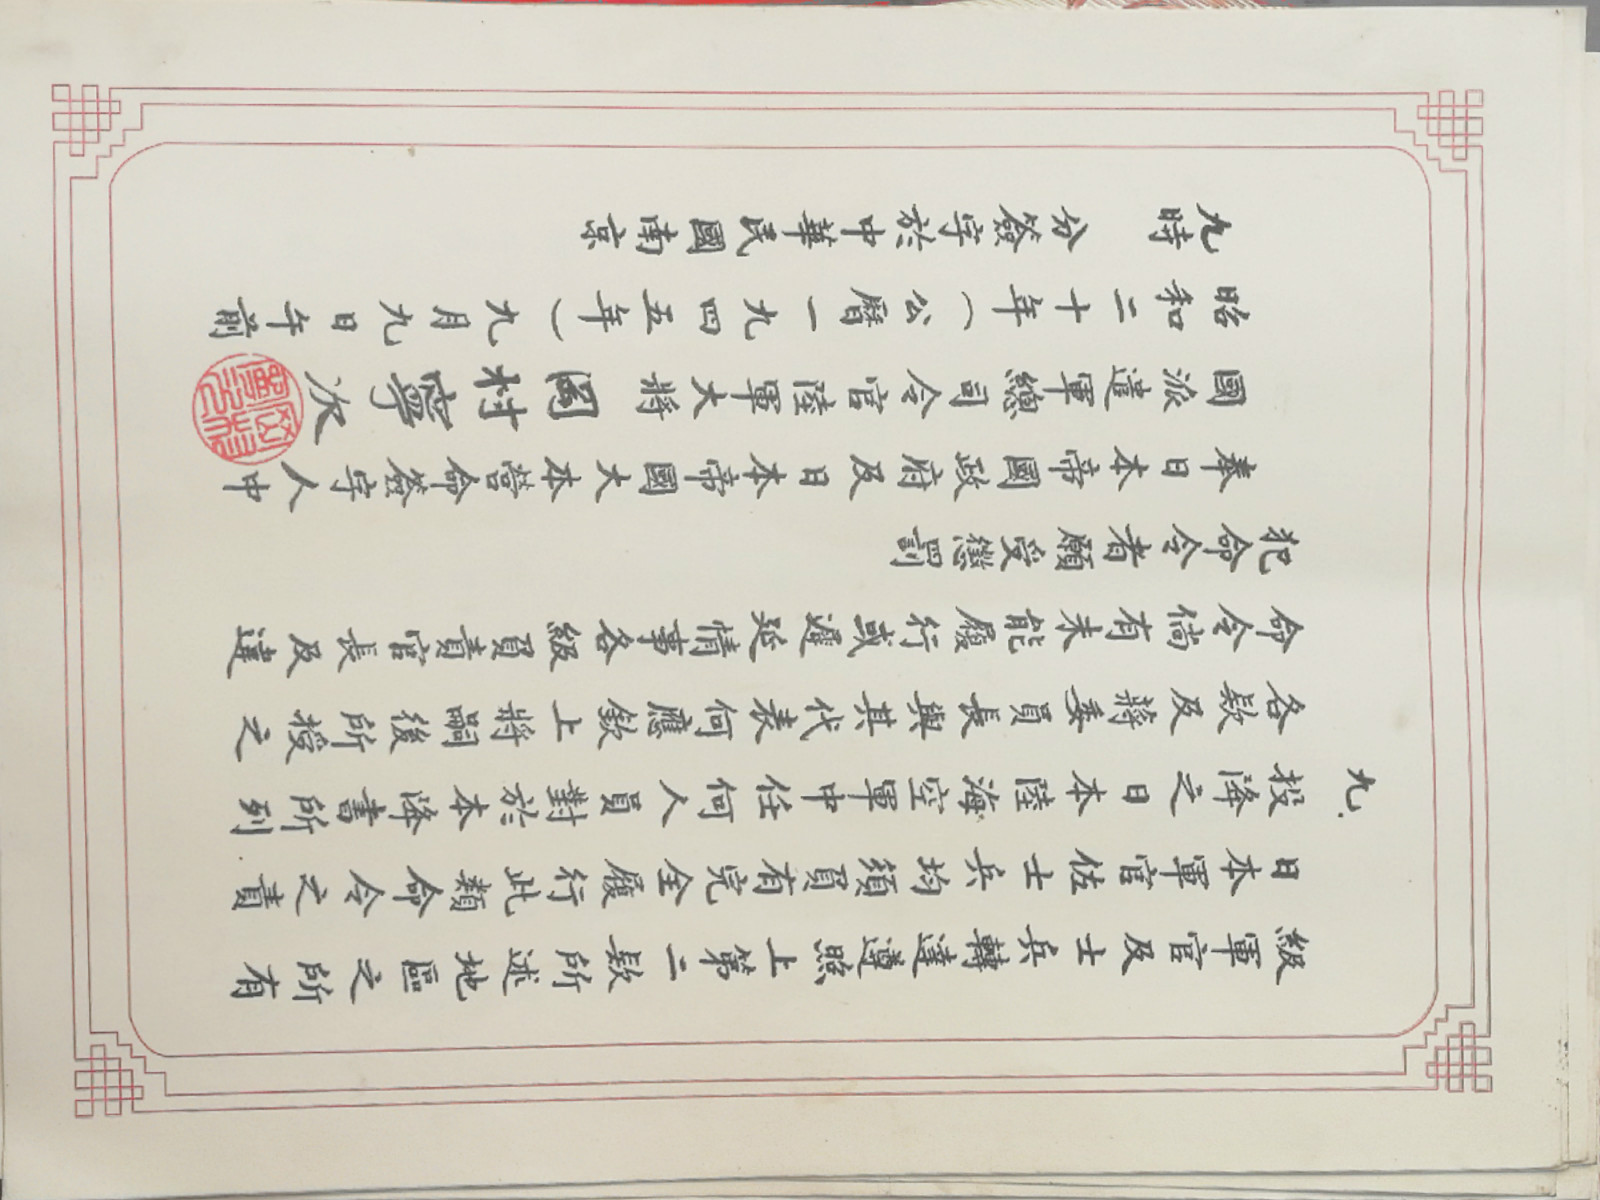 級軍官及士兵轉達遵照上第二款所述地區之所有
日本軍官佐士兵均須負有完全履行此類命令之責
九.投降之日本陸海空軍中任何人員對於本降書所列
各款及蔣委員長與其代表何應欽上將嗣後所授之
命令倘有未能履行或遲延情事各級負責官長及違
犯命令者願受懲罰
奉日本帝國政府及日本帝國大本營命簽字人中
國派遣軍總司令官陸軍大將 岡村寧次
昭和二十年(公曆一九四五年)九月九日午前
九時 分簽字於中華民國南京